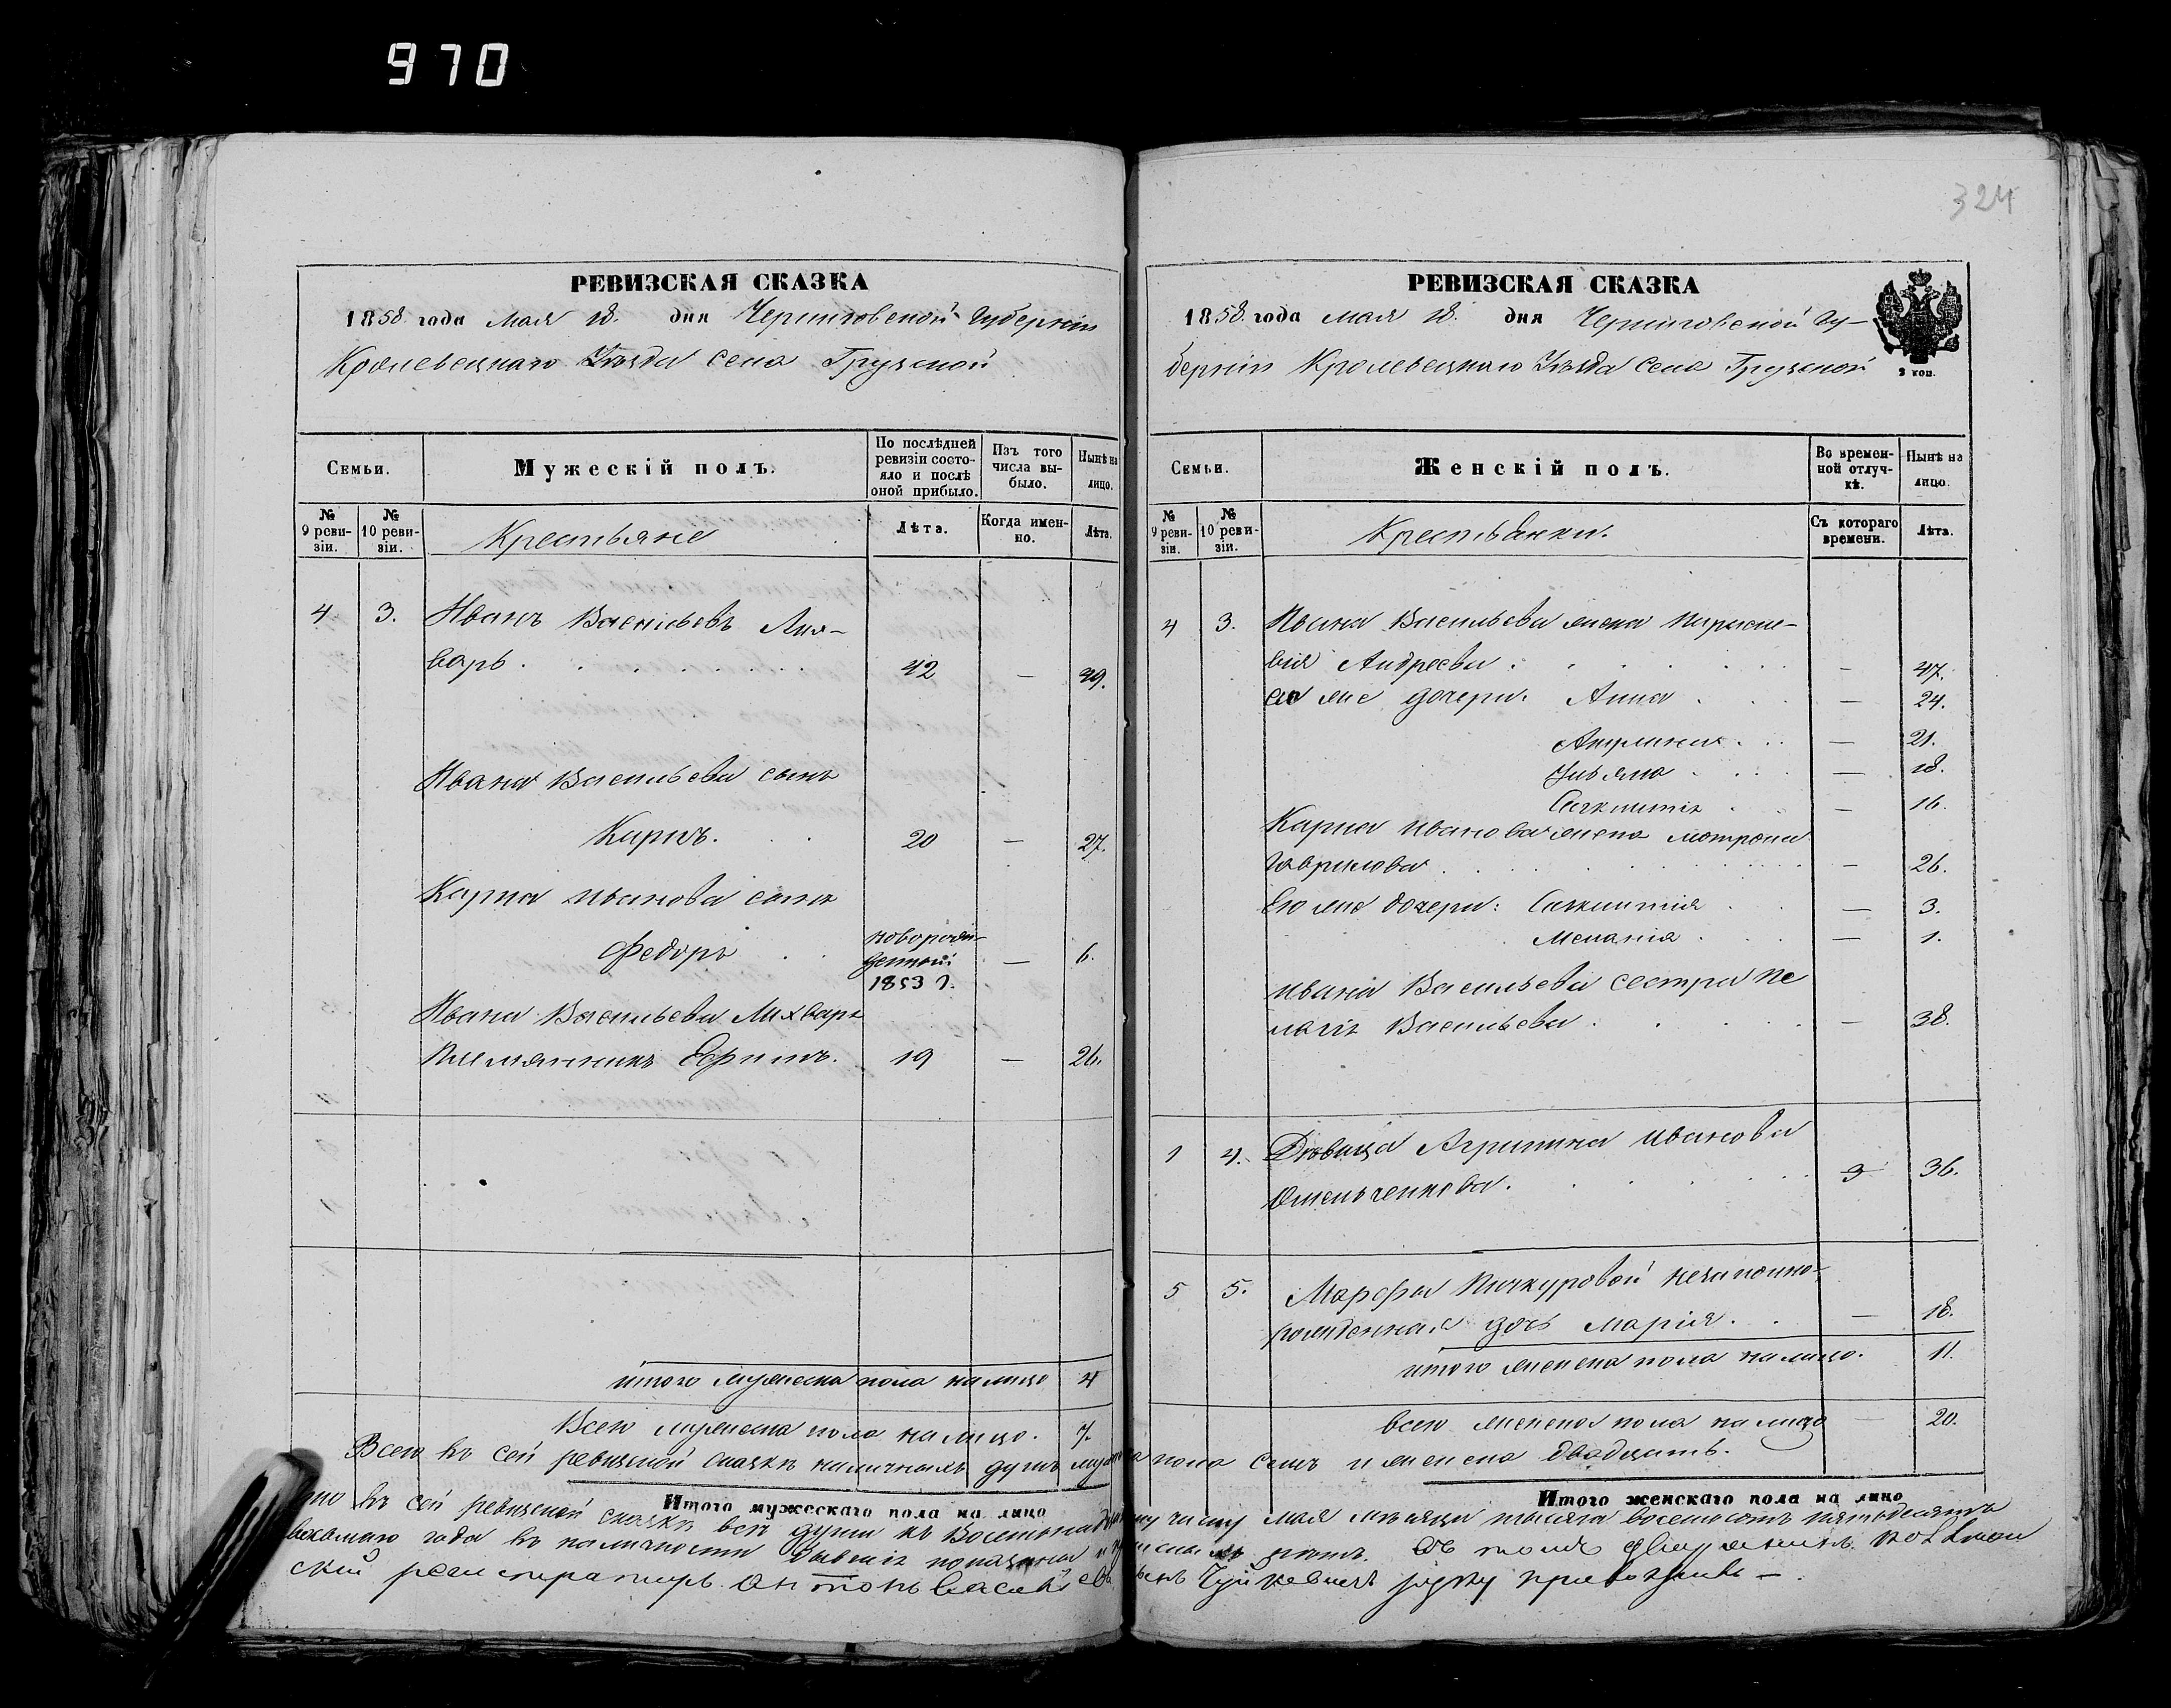 970
324
РЕВИЗСКАЯ СКАЗКА
1858 года мая 18. дня Черниговской Губерніи
Кролевецкаго Уѣзда села Грузской
Семьи.
Мужескій полъ.
По послѣдней ревизіи состояло и послѣ оной прибыло.
Изъ того числа выбыло.
Нынѣ на лицо.
№ 9 ревизіи.
№ 10 ревизіи.
Крестьяне
Лѣта.
Когда именно.
Лѣта.
4 3. Иванъ Васильевъ Лих-
варь . 42 — 49.
Ивана Васильева сынъ
Карпъ. 20 — 27.
Карпа Иванова сынъ
Федоръ новорож-
денный — 6.
1853 г.
Ивана Васильева Лихваря
Племянникъ Ефимъ. 19 — 26.
итого мужеска пола на лицо 4
Всего мужеска пола на лицо. 7.
РЕВИЗСКАЯ СКАЗКА
3 коп.
1858 года мая 18. дня Черниговской Гу-
берніи Кролевецкаго Уѣзда села Грузской
Семьи.
Женскій полъ.
Во временной отлучкѣ.
Нынѣ на лицо.
№ 9 ревизіи.
№ 10 ревизіи.
Крестьянки.
Съ котораго времени.
Лѣта.
4 3. Ивана Васильева жена Параске-
вия Андреева . — 47.
его же дочери: Анна — 24.
Акулина . — 21.
Ульяна — 18.
— 16.
Карпа Иванова жена Мотрона
Гаврилова . — 26.
Его же дочери: — 3.
Меланія . — 1.
Ивана Васильева сестра Пе
лагія Васильева . — 38.
1 4. Дѣвица Агрипина Иванова
Омельченкова . 36.
5 5. Марфы Пичкуровой незаконно-
рожденная дочь Марія . — 18.
итого женска пола на лицо. 11.
всего женска пола на лицо 20.
Всего въ сей ревизской сказкѣ наличныхъ душъ мужеска пола семь и женска двадцать.
Итого мужескаго пола на лицо
Итого женскаго пола на лицо
что въ сей ревизской сказкѣ всѣ души къ Восемнадцатому числу мая мѣсяца тысяча восемьсотъ пятьдесятъ
восьмаго года въ наличности бывшія показаны и
ский регистраторъ Антонъ Васильевъ сынъ Чуйкевичъ руку приложилъ —.